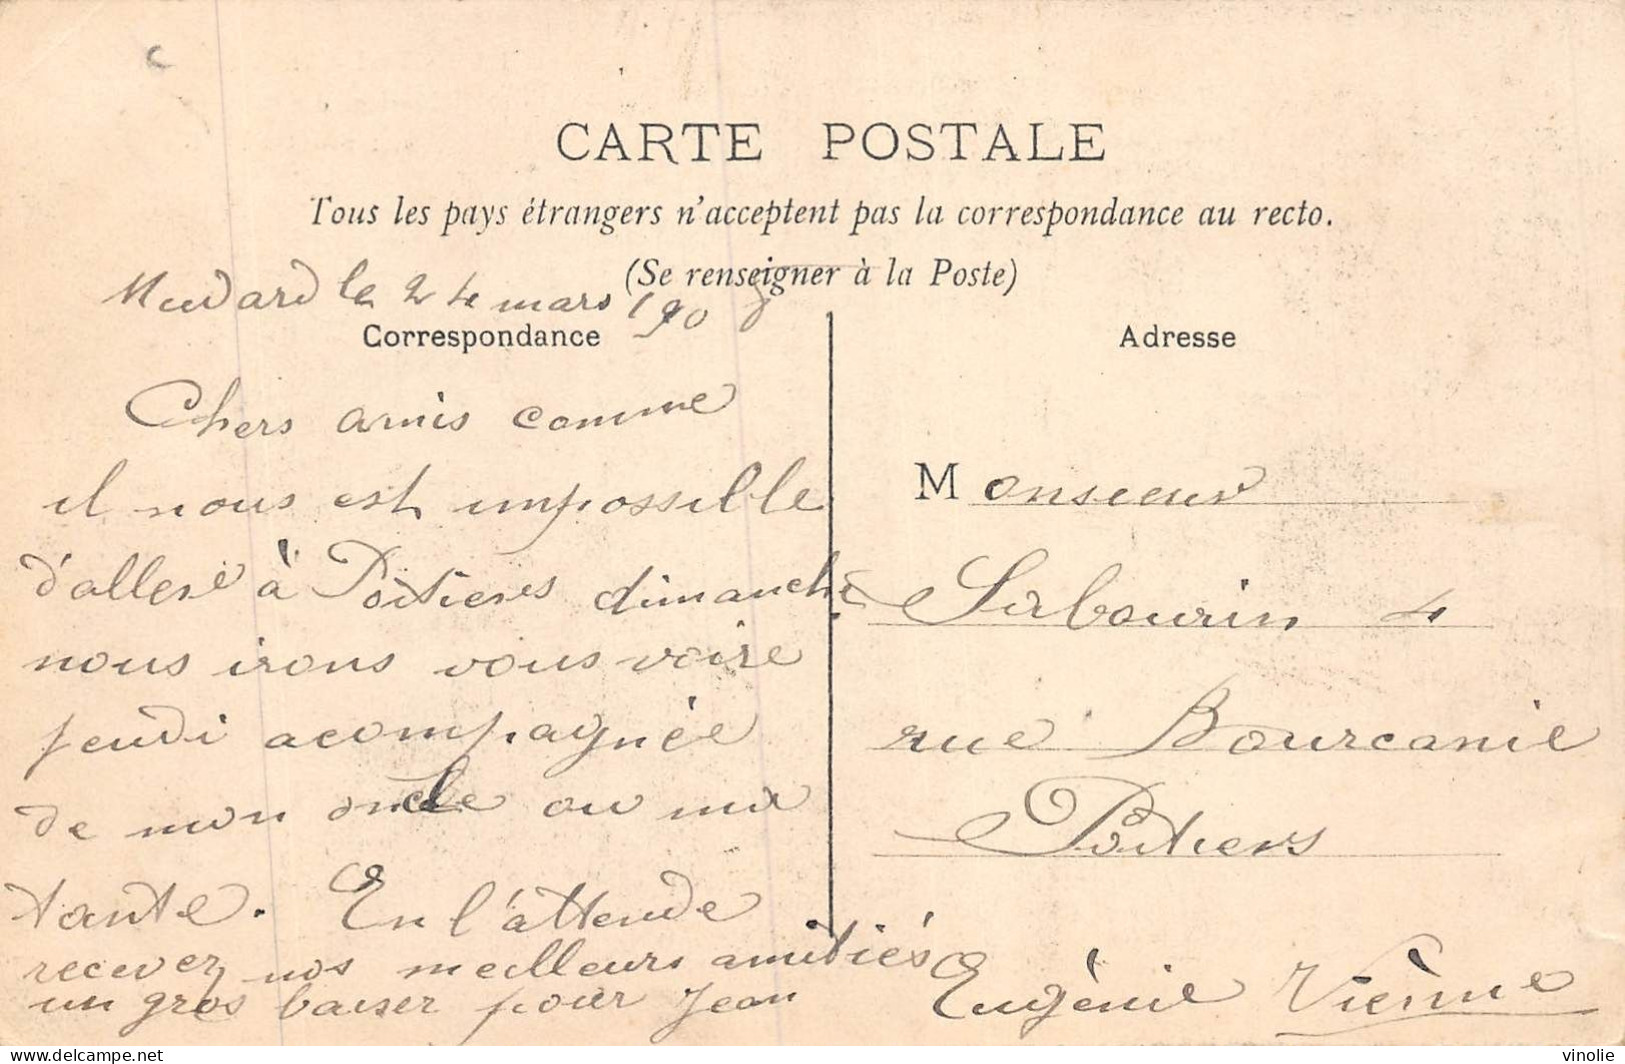 CARTE POSTALE
Tous les pays étrangers n'acceptent pas la correspondance au recto.
(Se renseigner à la Poste)
le 24 mars 1908
Correspondance
Chers amis comme
il nous est impossible
d'allere à Poitiers dimanche
nous irons vous voire
jeudi acompagnée
de mon oncle ou ma
tante. En l'attende
recevez nos meilleurs amitiés
un gros baiser pour Jean
Eugènie
Adresse
Monsieur
4
rue Bourcanie
Poitiers
Vienne
delcampe.net
vinolie